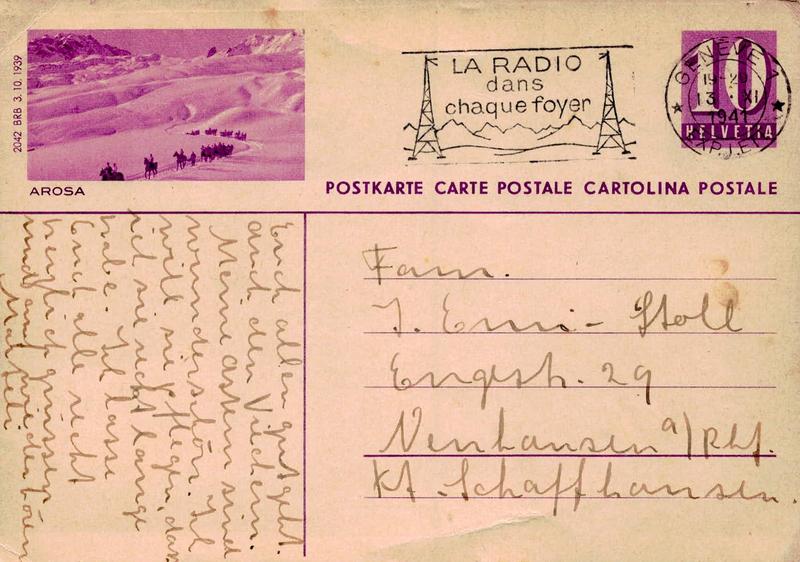 2042 BRB 3.10.1939
AROSA
LA RADIO
dans
chaque foyer
GENÈVE 1
13. XI
1941
10
HELVETIA
POSTKARTE CARTE POSTALE CARTOLINA POSTALE
Fam.
J. Erni-Stoll
Engestr. 29
Neuhausen a/Rhf.
Kt. Schaffhausen.
Euch allen gut geht.
auch den Viechern.
Meine Astern sind
wunderschön. Ich
will sie pflegen, dass
ich sie recht lange
habe. Ich lasse
Euch alle recht
herzlich grüssen
und auf Wiederhören